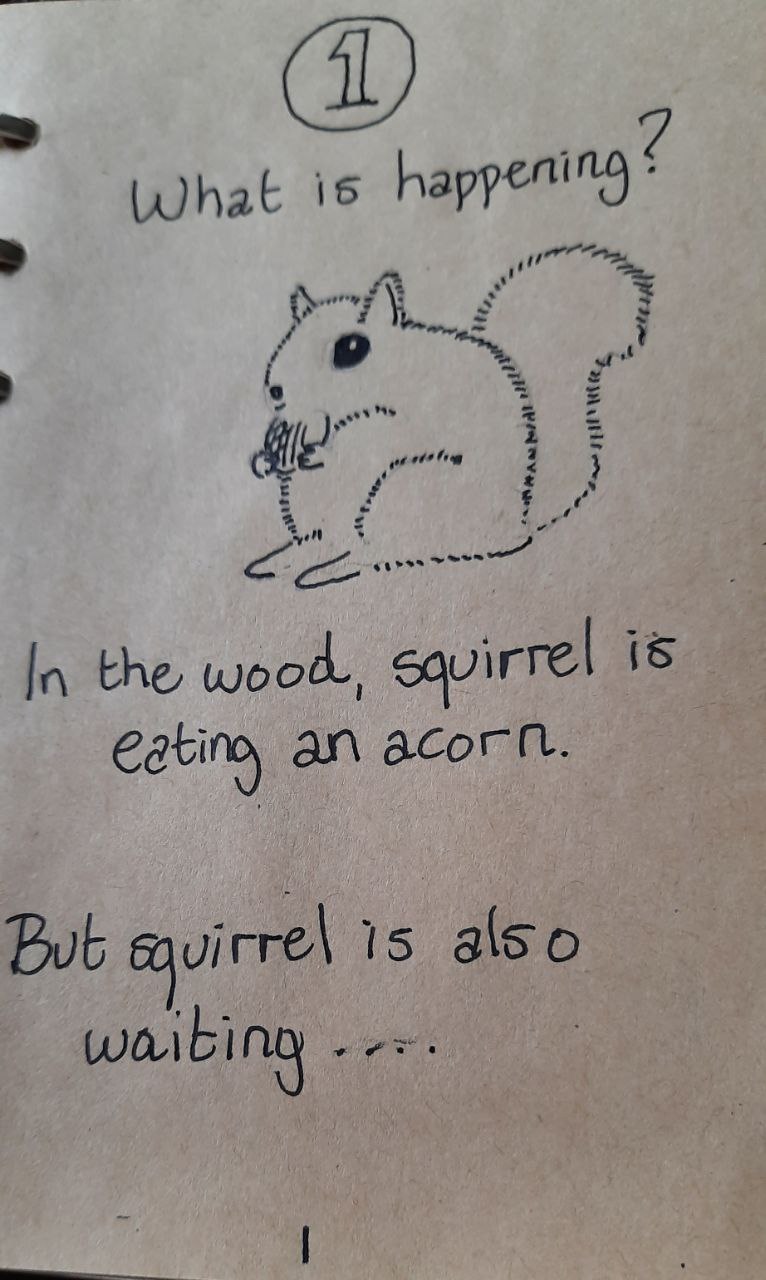 1
What is happening?
In the wood, squirrel is
eating an acorn.
But squirrel is also
waiting .....
1